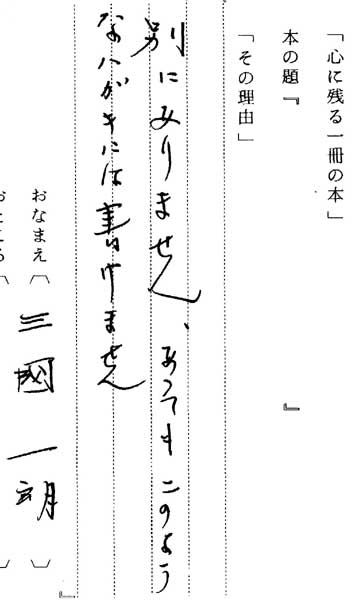 「心に残る一冊の本」
本の題『　　　』
「その理由」
別にありません、あってもこのよう
なハガキには書けません
おなまえ〔三國一朗〕
』